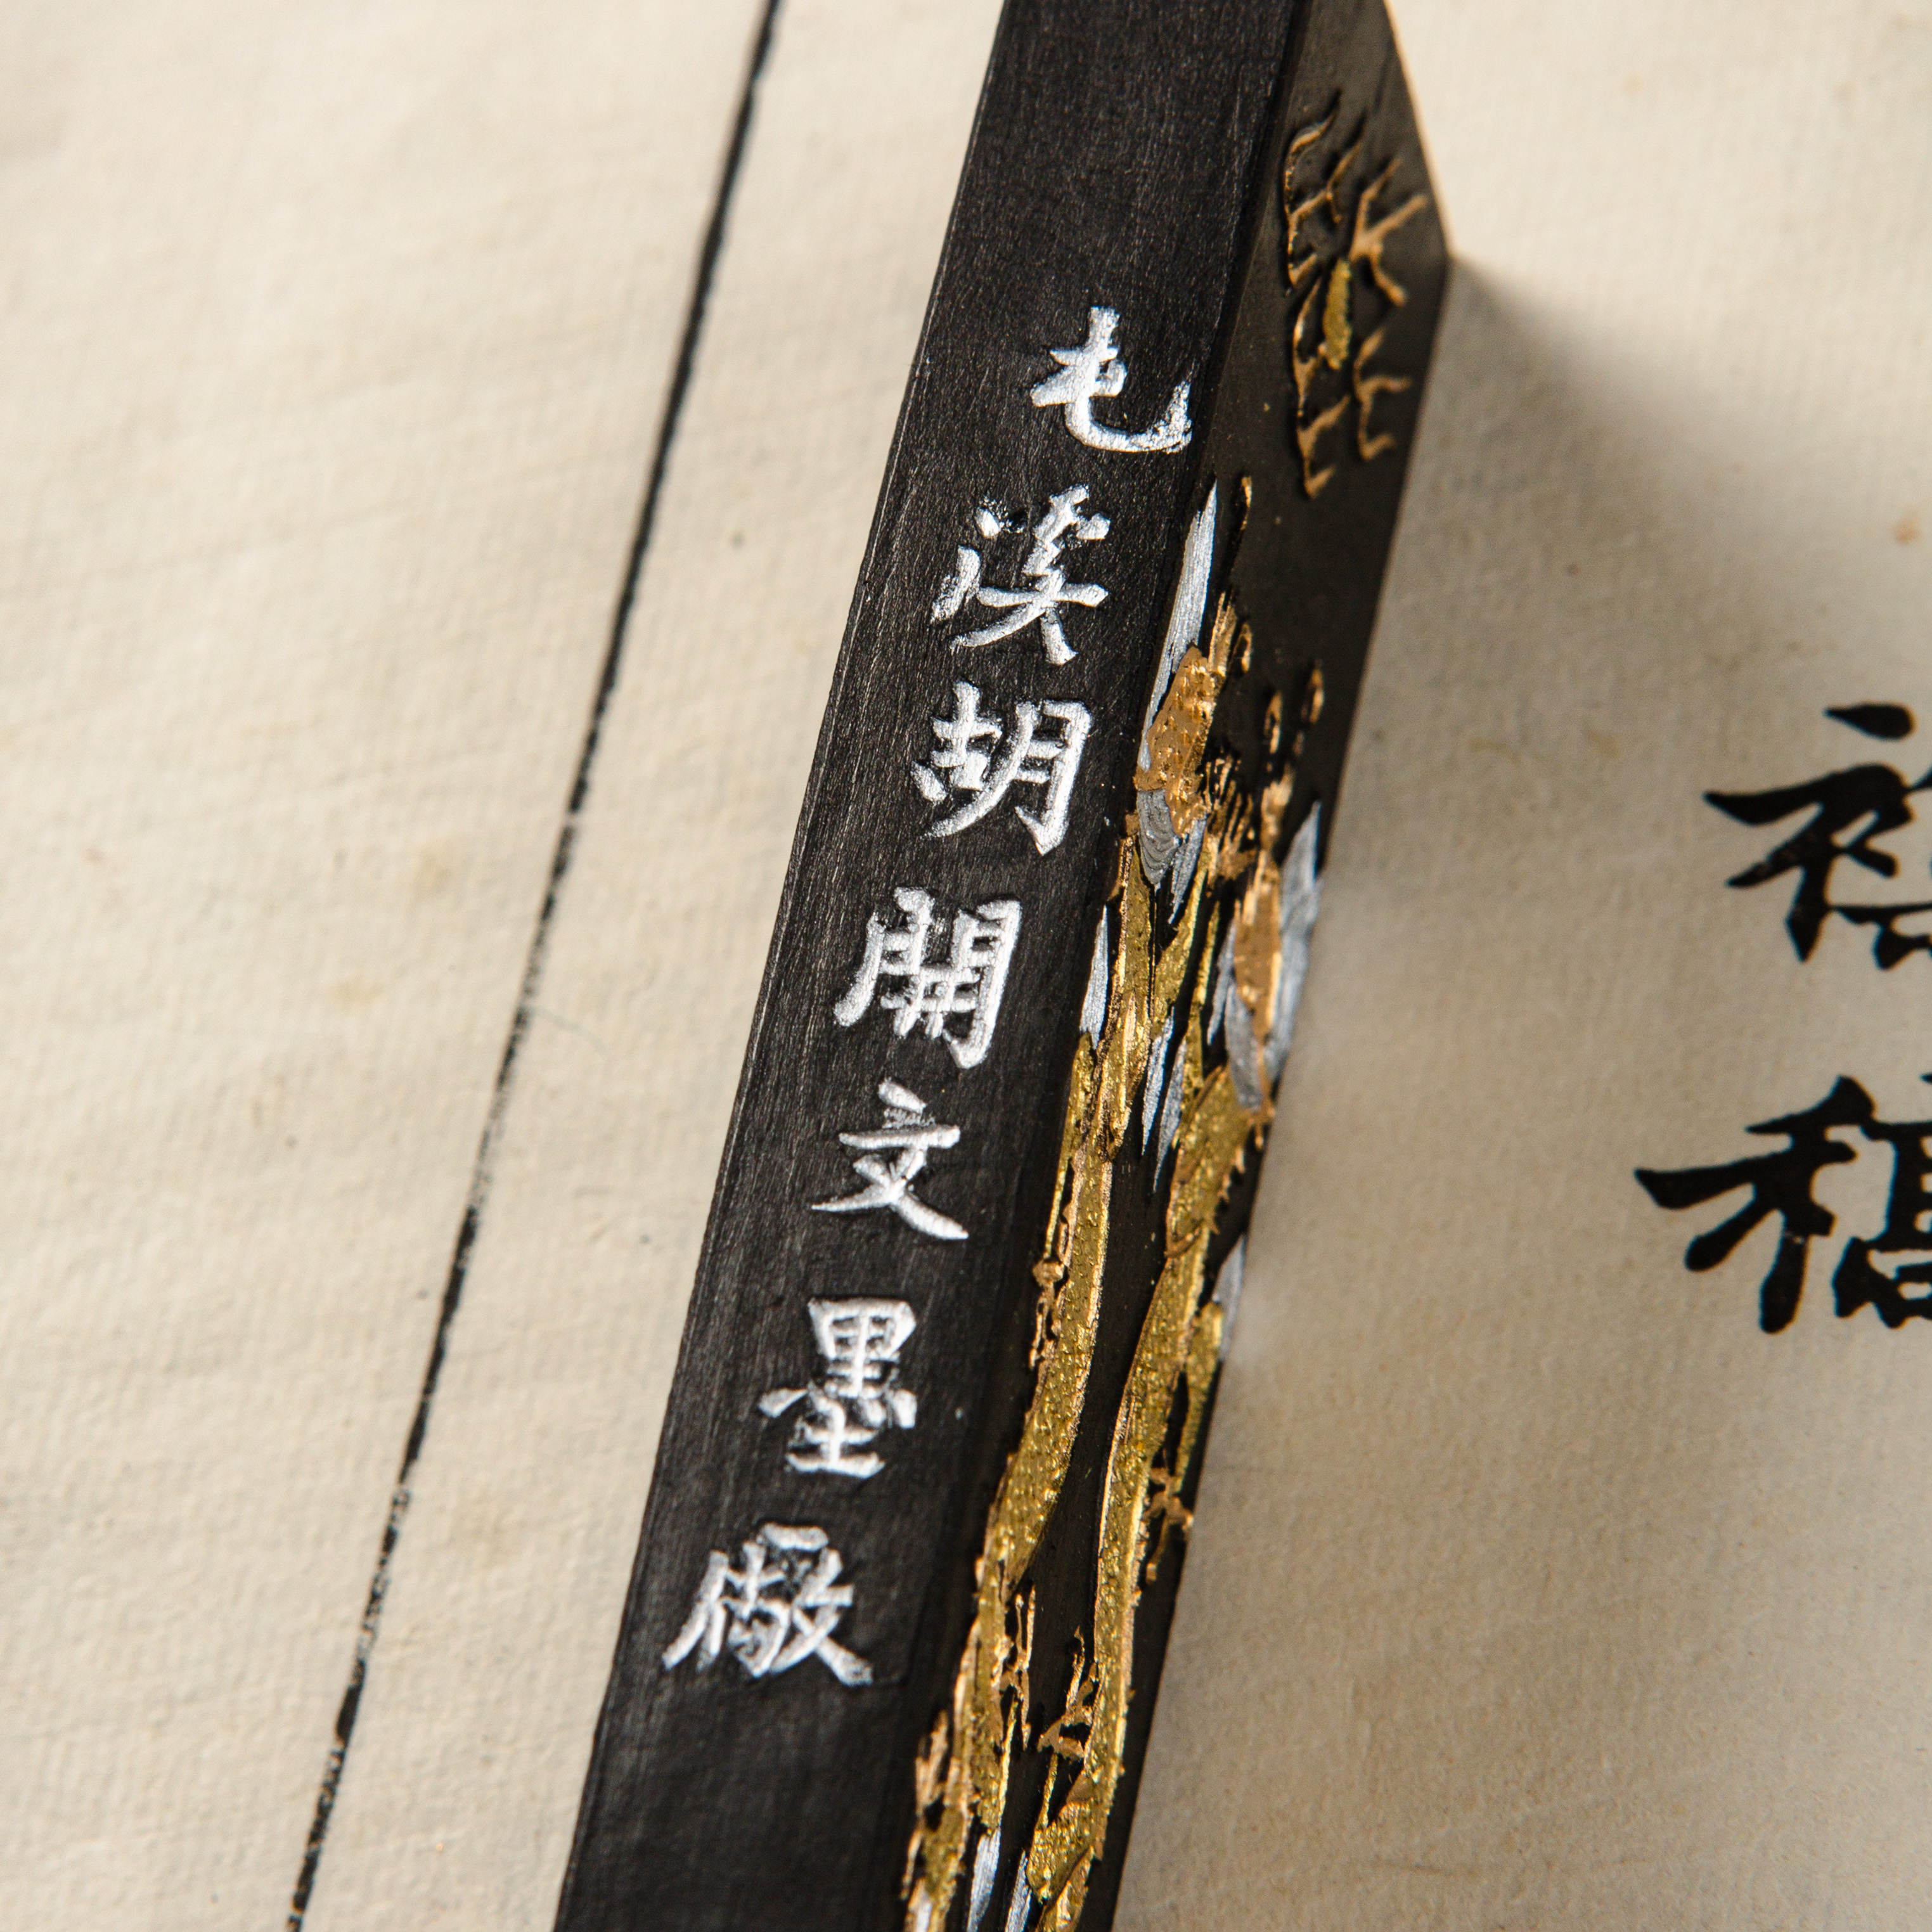 屯溪胡開文墨廠